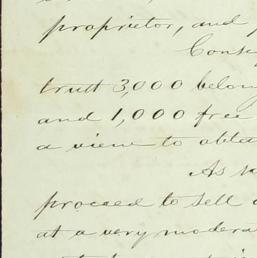 proprietor, and
trust 3,000 belon
and 1,000 free
a view to obta
As
proceed to sell
at a very modera